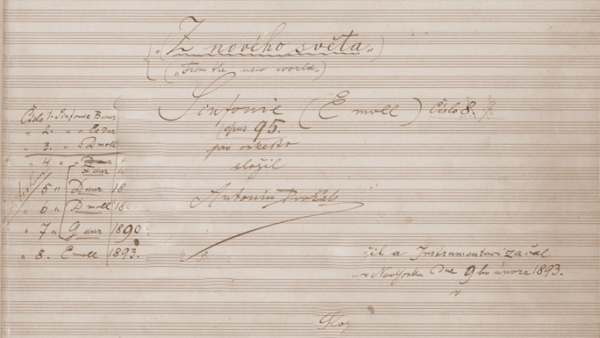 „Z nového světa„
(„From the new world„)
Sinfonie ( E moll ) Číslo 8.
opus 95.
pro orkestr
složil
Antonín Dvořák
Číslo 1. Sinfonie B dur
„ 2. „ „ Es dur
„ 3. „ D moll
„ 4 „ „
F dur
„ 5 „ D dur 18
„ 6 „ D moll 18
„ 7 „ G dur 1890.
„ 8. E moll 1893.
žil a začal
v New Yorku Dne 9ho února 1893.